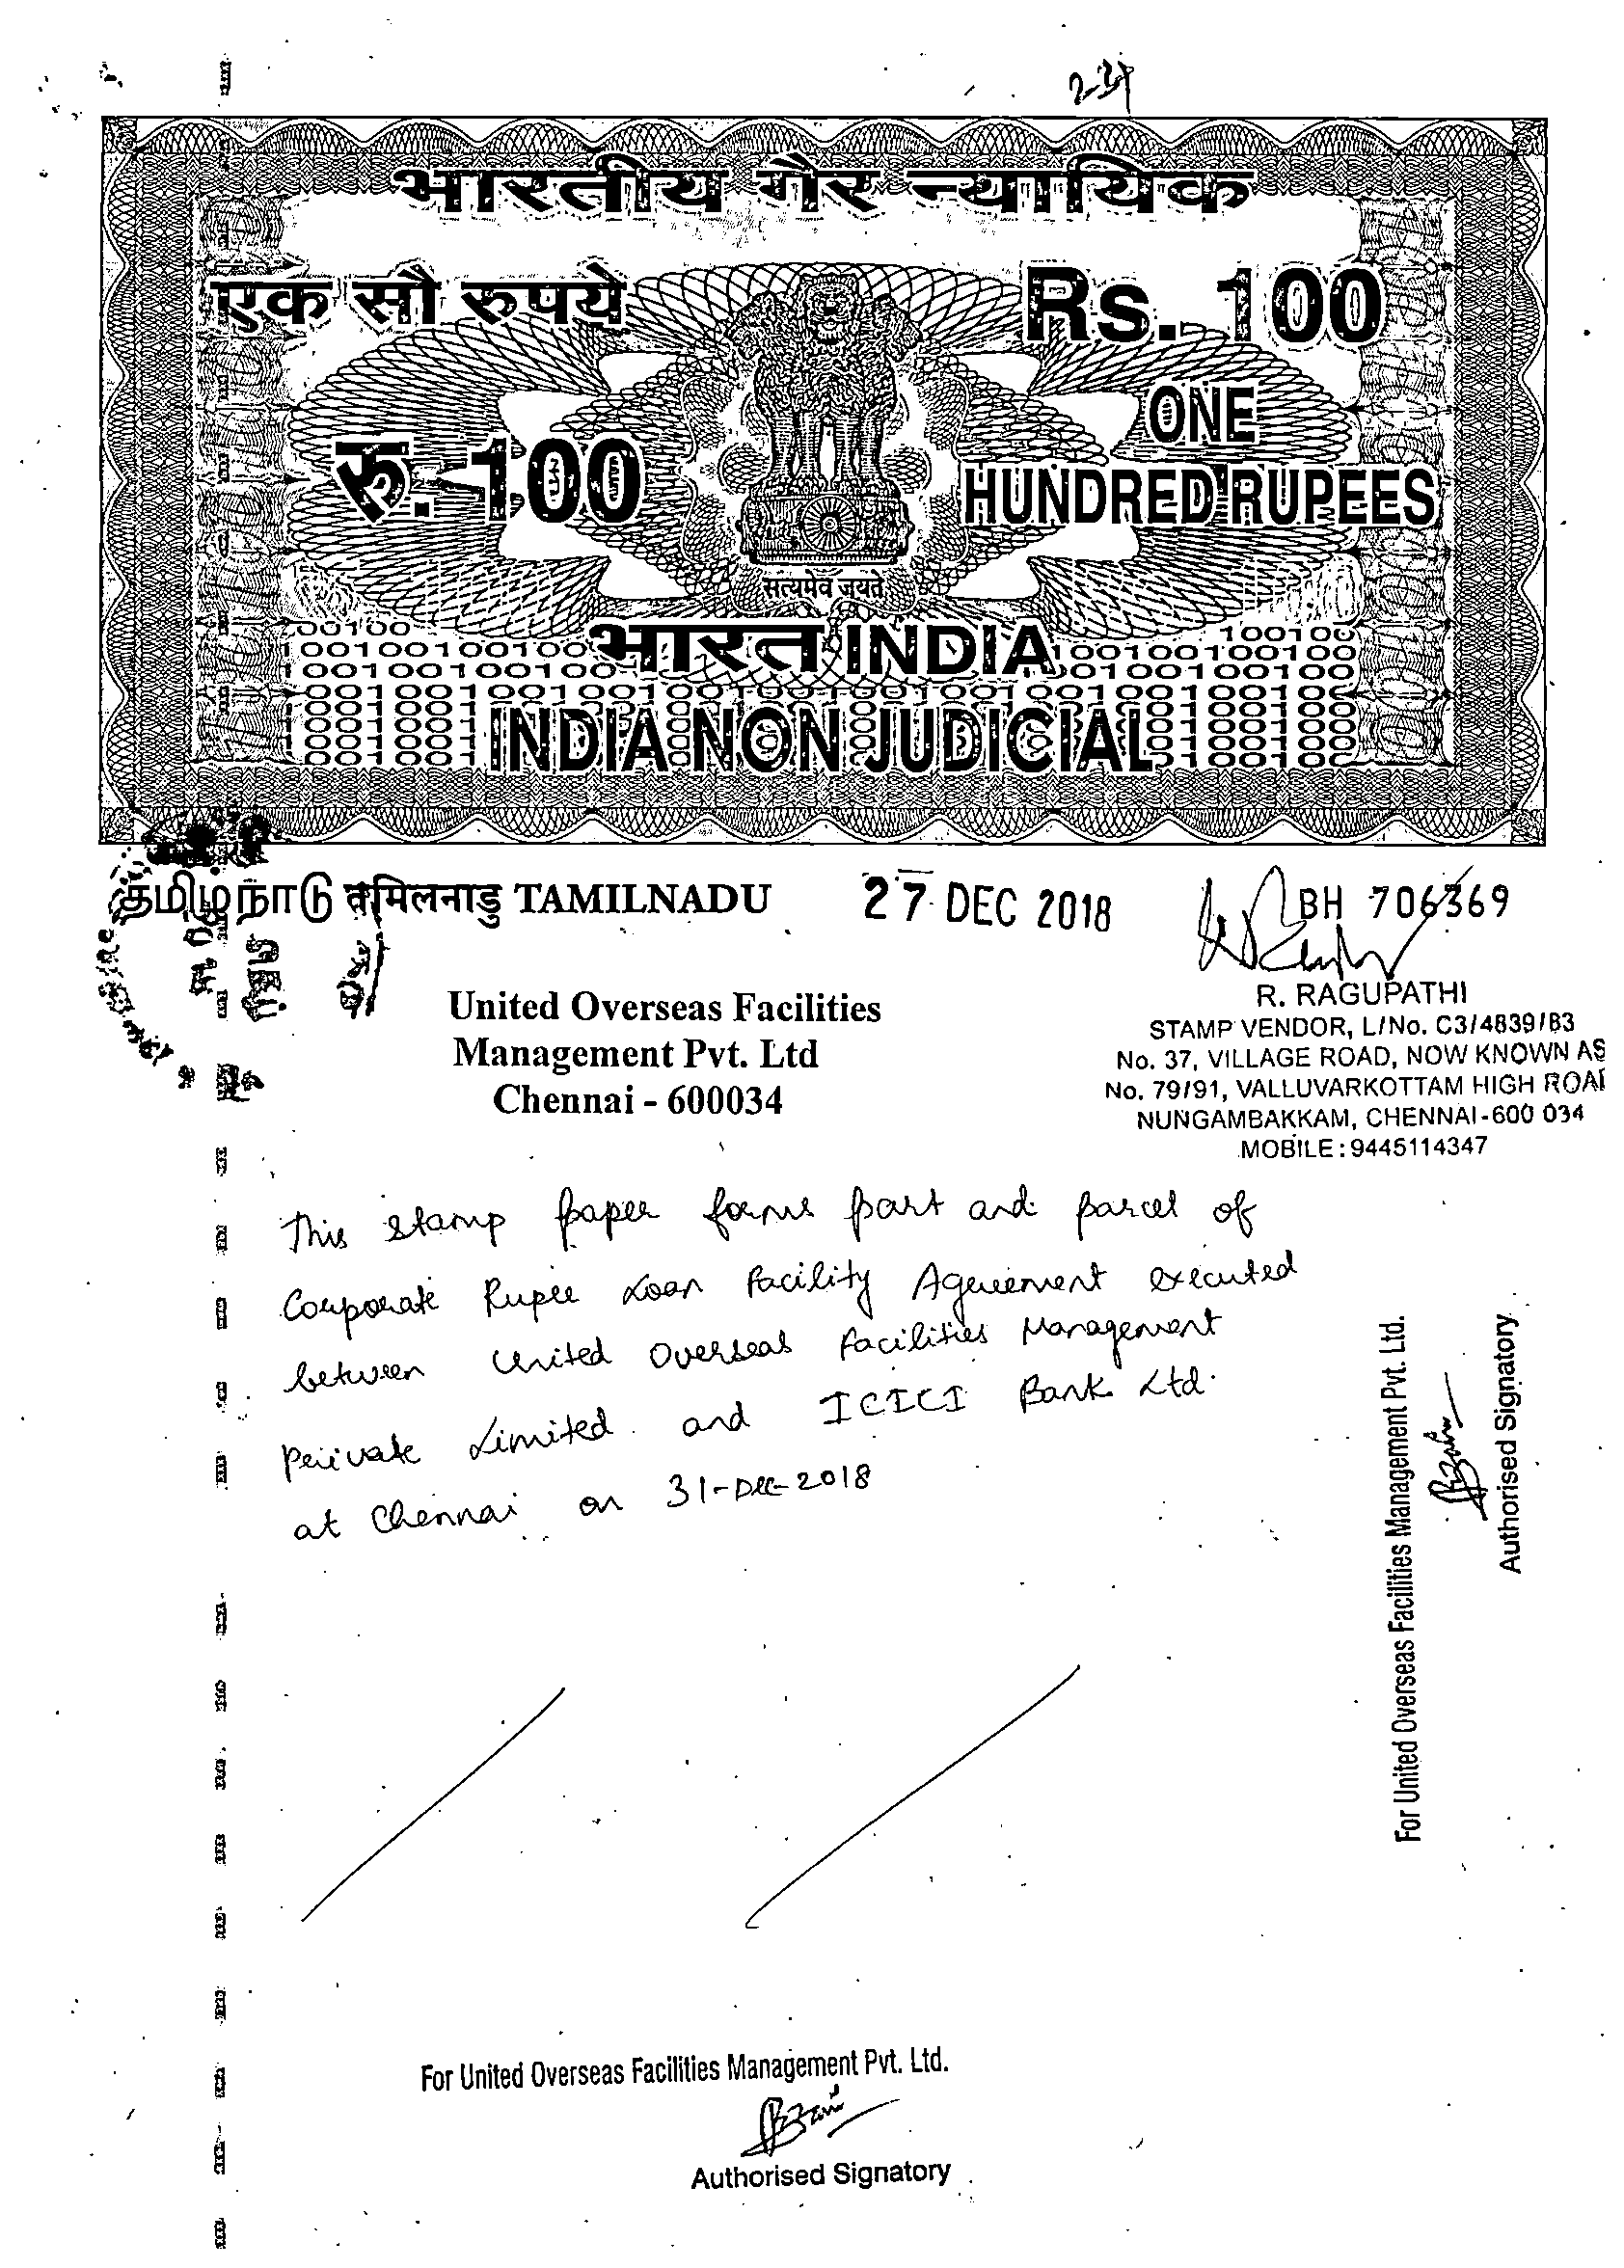 भारतीय गैर न्यायिक
एक सौ रुपये
Rs. 100
रु. 100
ONE
HUNDRED RUPEES
सत्यमेव जयते
भारत INDIA
INDIA NON JUDICIAL
தமிழ்நாடு तमिलनाडु TAMILNADU
27 DEC 2018
BH 706369
United Overseas Facilities
Management Pvt. Ltd
Chennai - 600034
R. RAGUPATHI
STAMP VENDOR, L/No. C3/4839/B3
No. 37, VILLAGE ROAD, NOW KNOWN AS
No. 79/91, VALLUVARKOTTAM HIGH ROAD
NUNGAMBAKKAM, CHENNAI-600 034
MOBILE: 9445114347
This stamp paper forms part and parcel of
Corporate Rupee Loan Facility Agreement executed
between United Overseas Facilities Management
Private Limited and ICICI Bank Ltd.
at Chennai on 31-Dec-2018
For United Overseas Facilities Management Pvt. Ltd.
Authorised Signatory
For United Overseas Facilities Management Pvt. Ltd.
Authorised Signatory